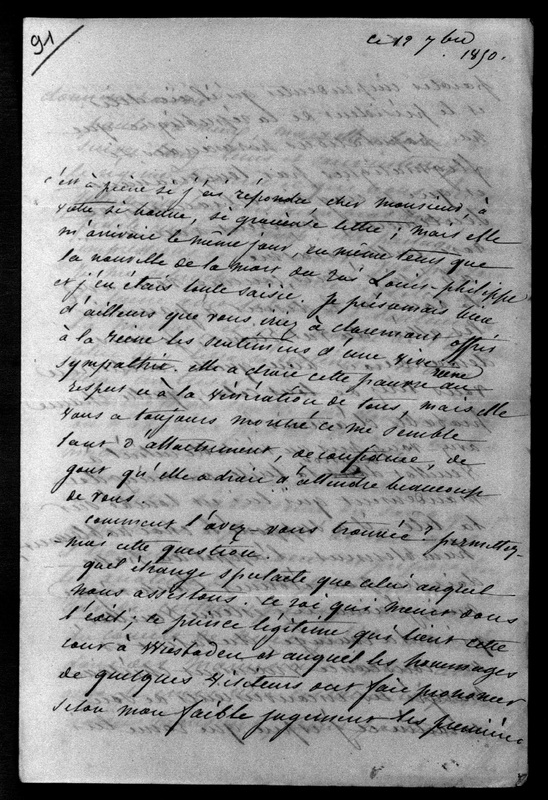 91
ce 19 7bre
1850.
c'est à peine si j'ai répondu cher monsieur, à
votre si bonne, si gracieuse lettre ; mais elle
m'arrivoit le même jour, en même tems que
la nouvelle de la mort du roi Louis-philippe
et j'en étais toute saisie. je présumais bien
d'ailleurs que vous iriez à claremont offrir
à la reine les sentimens d'une vive
sympathie. elle a droit cette pauvre reine au
respect et à la vénération de tous, mais elle
vous a toujours montré ce me semble
tant d'attachement, de confiance, de
gout qu'elle a droit d'attendre beaucoup
de vous.
comment l'avez-vous trouvée ? permettez-
moi cette question.
quel étrange spectacle que celui auquel
nous assistons. ce roi qui meurt dans
l'exil ; ce prince légitime qui tient cette
cour à Wiesbaden et auquel les hommages
de quelques visiteurs ont fait prononcer
selon mon faible jugement les premières